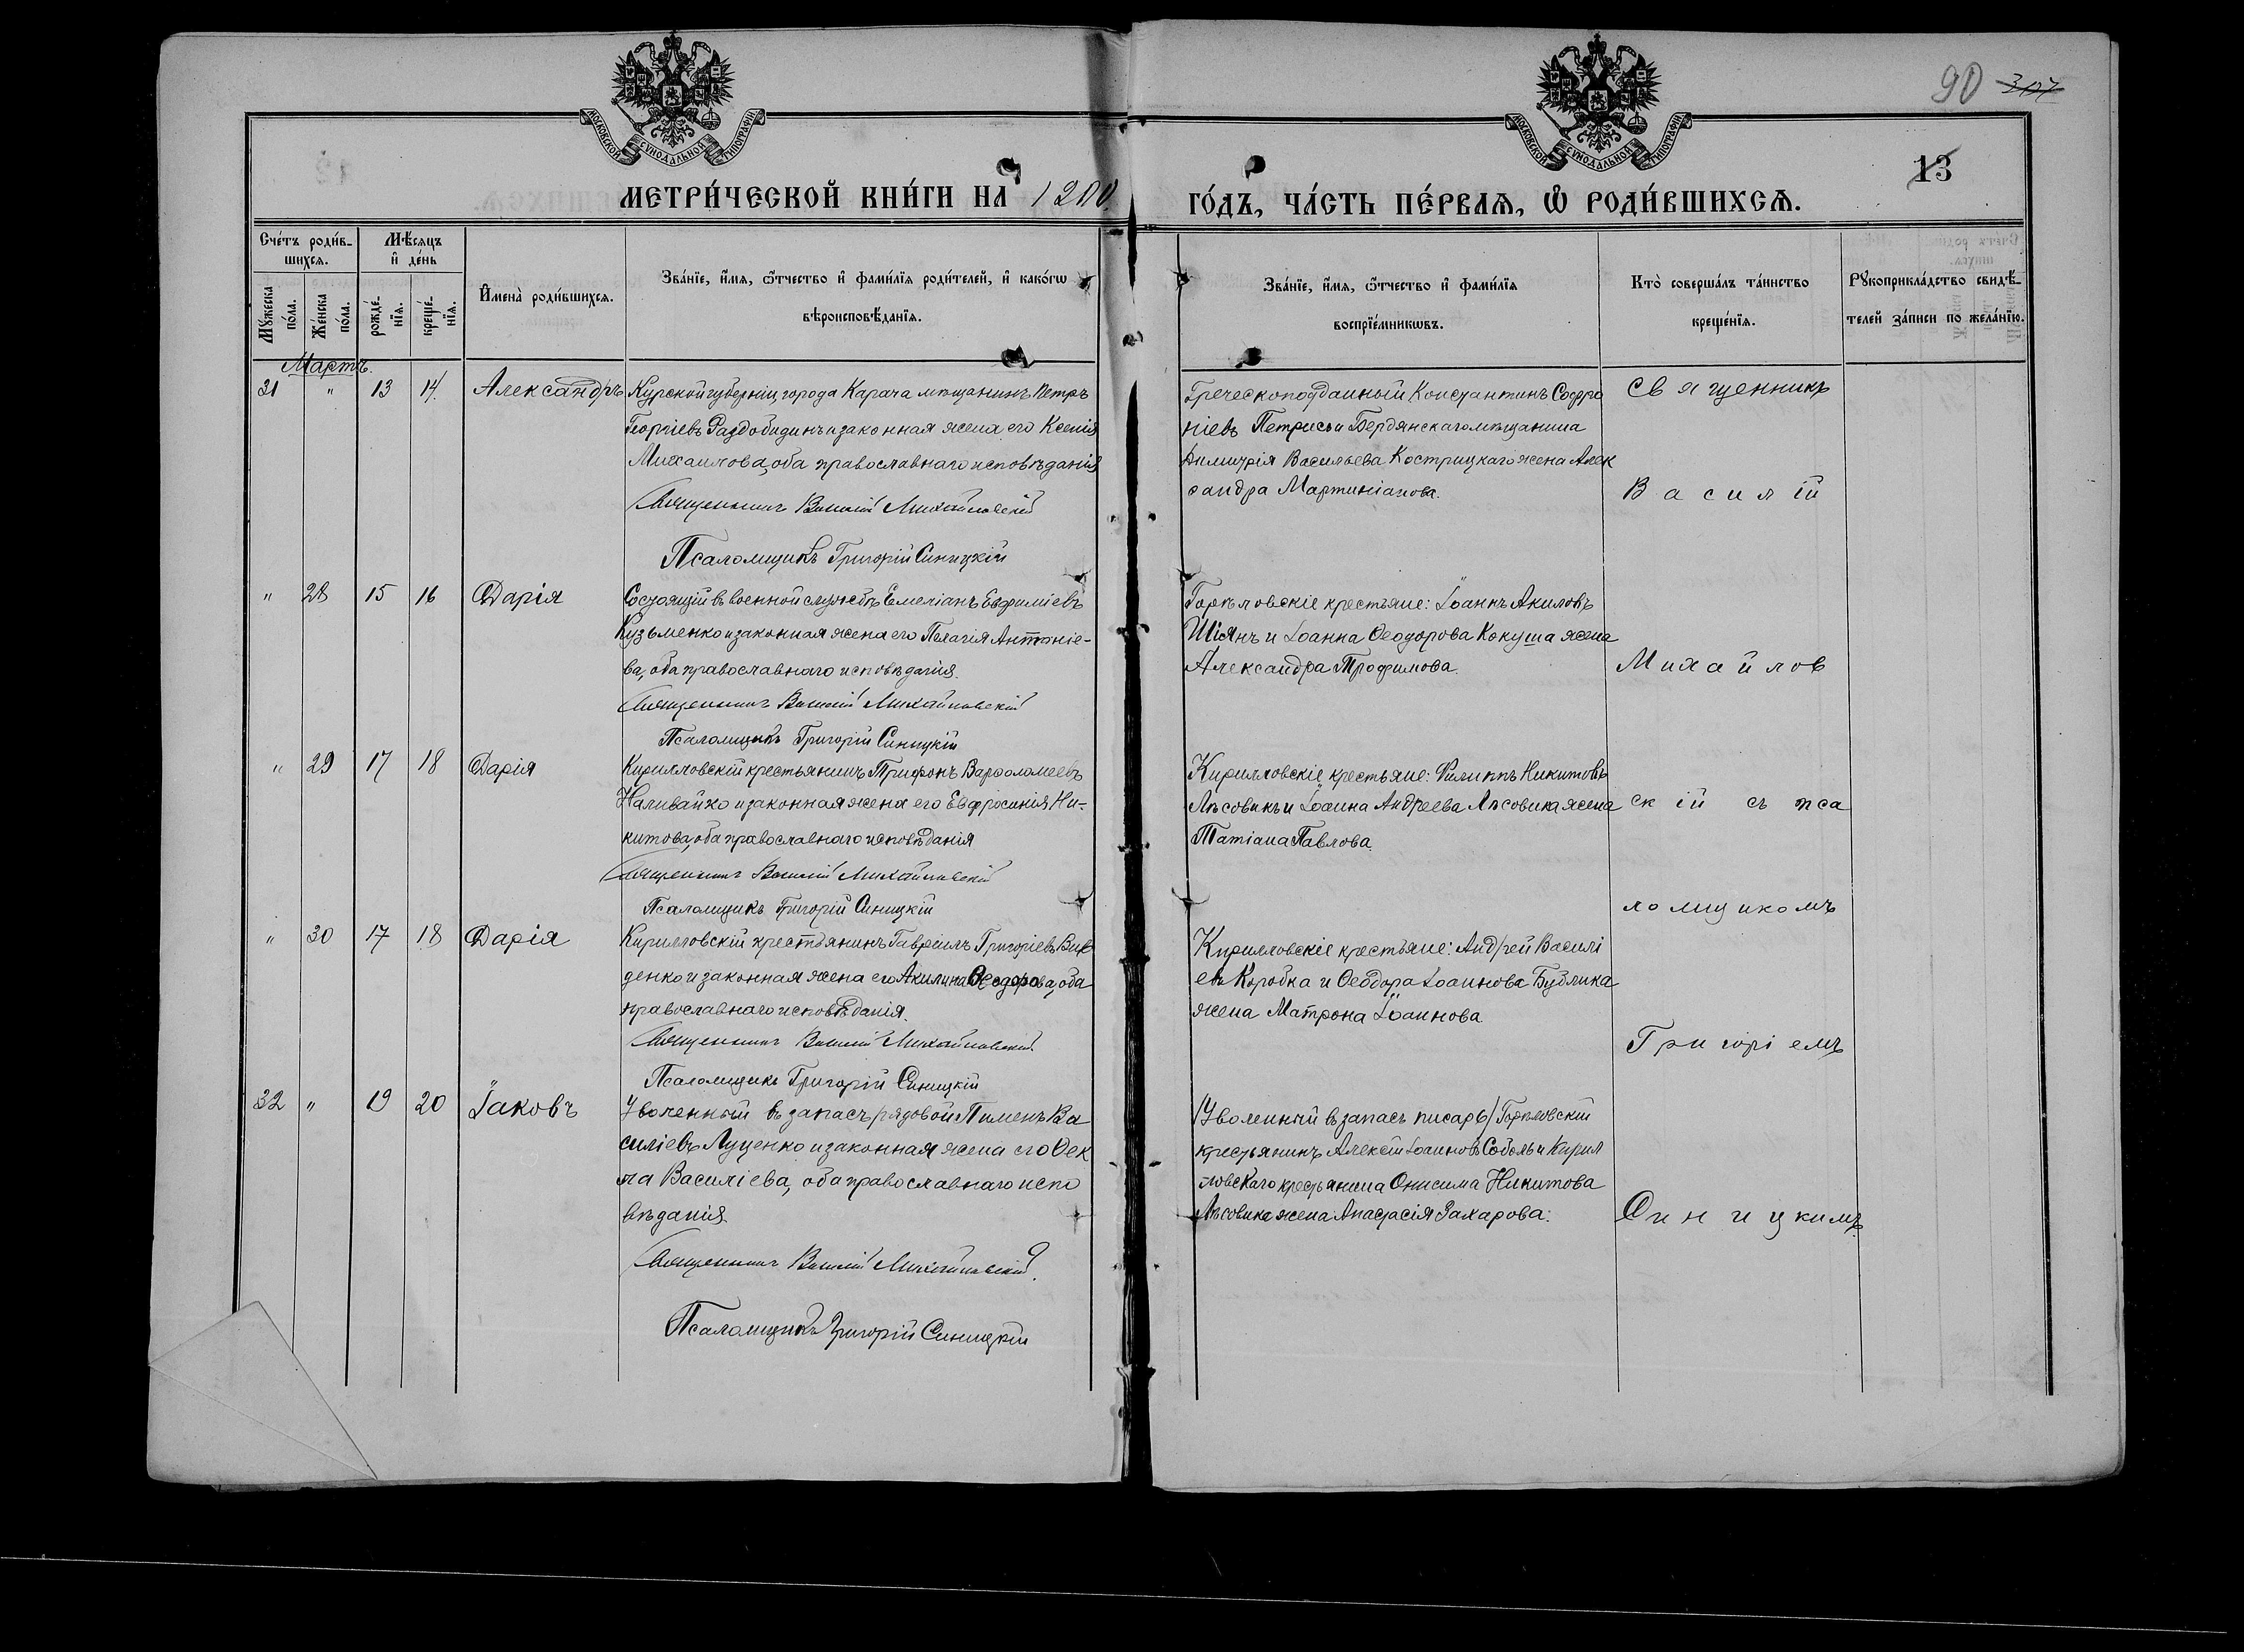 90 307
13
МОСКОВСКОЙ СѴНОДАЛЬНОЙ ТИПОГРАФІИ
МОСКОВСКОЙ СѴНОДАЛЬНОЙ ТИПОГРАФІИ
МЕТРИ́ЧЕСКОЙ КНИ́ГИ НА
ГО́ДЪ, ЧА́СТЬ ПЕ́РВАѦ, Ѡ҆ РОДИ́ВШИХСѦ.
Сче́тъ роди́в-
шихсѧ.
Мꙋ́жеска по́ла.
Же́нска по́ла.
Мѣ́сѧцъ
и҆ де́нь
рожде́-
нїѧ.
креще́-
нїѧ.
И҆мена̀ роди́вшихсѧ.
Зва́нїе, и҆́мѧ, ѻ҆́тчество и҆ фами́лїѧ роди́телей, и҆ како́гѡ
вѣроисповѣ́данїѧ.
Зва́нїе, и҆́мѧ, ѻ҆́тчество и҆ фами́лїѧ
воспрїе́мникѡвъ.
Кто̀ соверша́лъ та́инство
креще́нїѧ.
Рꙋкоприкла́дство свидѣ́-
телей за́писи по жела́нїю.
Мартъ.
31 " 13 14. Александръ
Курской губерніи, города Карача мѣщанинъ Петръ
Георгіевъ Раздобидинъ и законная жена его Ксенія
Михаилова, оба православнаго исповѣданія
Священникъ Василій Михайловскій
Псаломщикъ Григорій Синицкій
Греческоподданный Константинъ Софро
ніевъ Петрисъ и Бердянскаго мѣщанина
Димитрія Васильева Кострицкаго жена Алек
сандра Мартиніанова.
" 28 15 16 Дарія
Состоящій въ военной службѣ Емеліанъ Евфиміевъ
Кузьменко и законная жена его Пелагія Антоніе-
ва, оба православнаго исповѣданія.
Священникъ Василій Михайловскій
Псаломщикъ Григорій Синицкій
Горѣловскіе крестьяне: Іоаннъ Акиловъ
Шіянъ и Іоанна Ѳеодорова Кокуша жена
Александра Трофимова.
" 29 17 18 Дарія
Кирилловскій крестьянинъ Трифонъ Варѳоломеевъ
Наливайко и законная жена его Евфросинія Ни-
китова, оба православнаго исповѣданія
Священникъ Василій Михайловскій
Псаломщикъ Григорій Синицкій
Кирилловскіе крестьяне: Филиппъ Никитовъ
Лѣсовикъ и Іоанна Андреева Лѣсовика жена
Татіана Павлова.
" 30 17 18 Дарія
Кирилловскій крестьянинъ Гавріилъ Григоріевъ
денко и законная жена его Акилина Ѳеодорова, оба
православнаго исповѣданія.
Священникъ Василій Михайловскій
Псаломщикъ Григорій Синицкій
Кирилловскіе крестьяне: Андрей Василі
евъ Коробка и Ѳеодора Іоаннова Бублика
жена Матрона Іоаннова.
32 " 19 20 Іаковъ
Уволенный въ запасъ рядовой Пименъ Ва
силіевъ Луценко и законная жена его Ѳек
ла Василіева, оба православнаго испо
вѣданія.
Священникъ Василій Михайловскій.
Псаломщикъ Григорій Синицкій
/Уволенный въ запасъ писарь/ Горѣловскій
крестьянинъ Алексій Іоанновъ Соболь и Кирил
ловскаго крестьянина Онисима Никитова
Лѣсовика жена Анастасія Захарова.
Священникъ
Василій
Михайлов
скій съ пса
ломщикомъ
Григоріемъ
Синицкимъ.